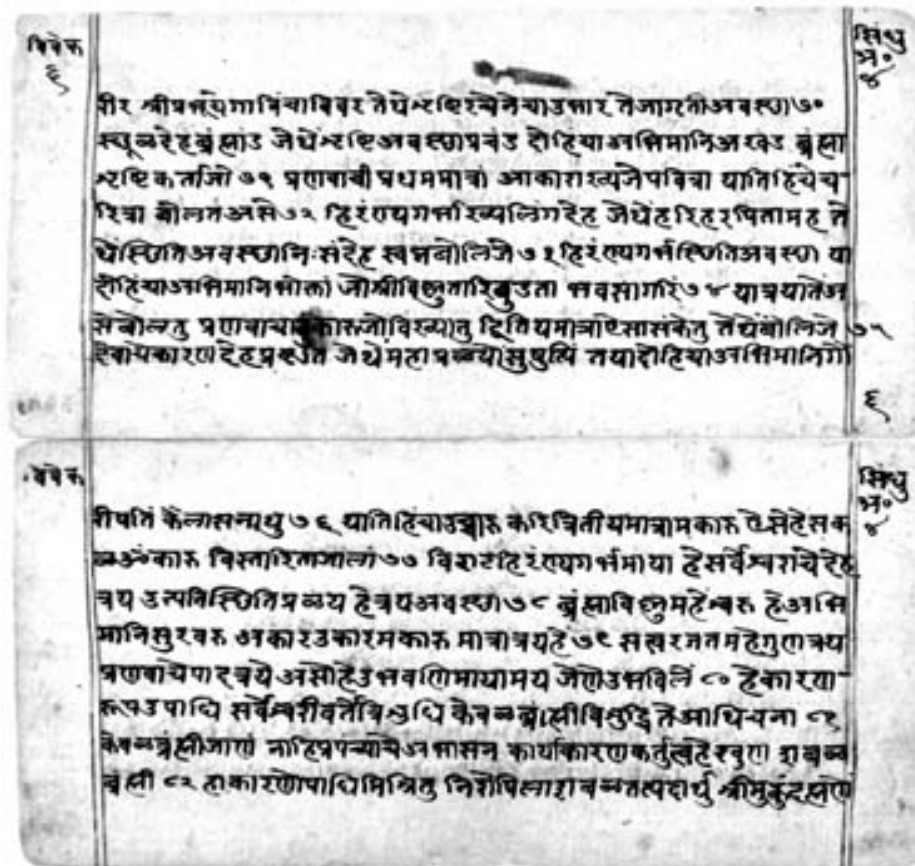 विवेक
६
सिंधु
अ॰
४
स्थूळदेह ब्रह्मांड जेथें श्रष्टि अवस्था प्रचंड दोहिचा अभिमानि अखंड ब्रह्मा
श्रष्टिकर्ता जो ७१ प्रणवाची प्रथममात्रा आकाराख्य जे पवित्रा यातिहिंचे च
रित्रा बोलतं असे ७२ हिरंण्यगर्भाख्य लिंगदेह जेथें हरिहरपितामह ते
थें स्थिति अवस्था निःसंदेह स्वप्न बोलिजे ७३ हिरंण्यगर्भ स्थिति अवस्था या
दोहिचा अभिमानि भोक्ता जो श्रीविष्णु तारि बुडता भवसागरिं ७४ यात्रयातें अ
से बोलतु प्रणवाचा कारु जो विख्यातु द्वितियमात्रा ऐसा संकेतु तेथें बोलिजे ७५
देवाचे कारणदेह प्रकृति जेथें महाप्रळयो सुषुप्ति तया दोहिचा अभिमानि गौ
६
सिंधु
अ॰
४
रीपति कैलासनाथु ७६ यातिहिंचा उच्चारु करि त्रितीयमात्रा मकारु ऐसे हे सक
ळ ॐकारु विस्तारिता जाला ७७ विराट हिरंण्यगर्भ माया हे सर्वेश्वराचे देह
त्रय उत्पति स्थिति प्रळय हे त्रय अवस्था ७८ ब्रह्मा विष्णु महेश्वरु हे अभि
मानि सुरवरु अकार उकार मकारु मात्रात्रय हे ७९ सत्व रज तम हे गुणत्रय
प्रणवाचे पदत्रये असो हे उभवणि मायामय जेणे उभविलें ८० हे कारण
रुप उपाधि सर्वेश्वरी वर्ते त्रिशुधि केवळ ब्रह्मी विशुद्धि ते आथिचना ८१
केवळ ब्रह्मी जाण नाहि प्रपंचाचे अभासन कार्यकारण कर्तृत्व हे खुण शबळ
ब्रह्मी ८२ हा कारणोपाधि मिश्रितु निरोपिला शबळ तत्पदार्थु श्रीमुकुंद ह्मणे